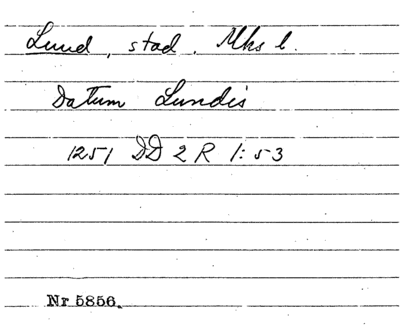 Lund, stad. Mhs l.
Datum Lundis
1251 DD 2 R 1:53
Nr 5856.